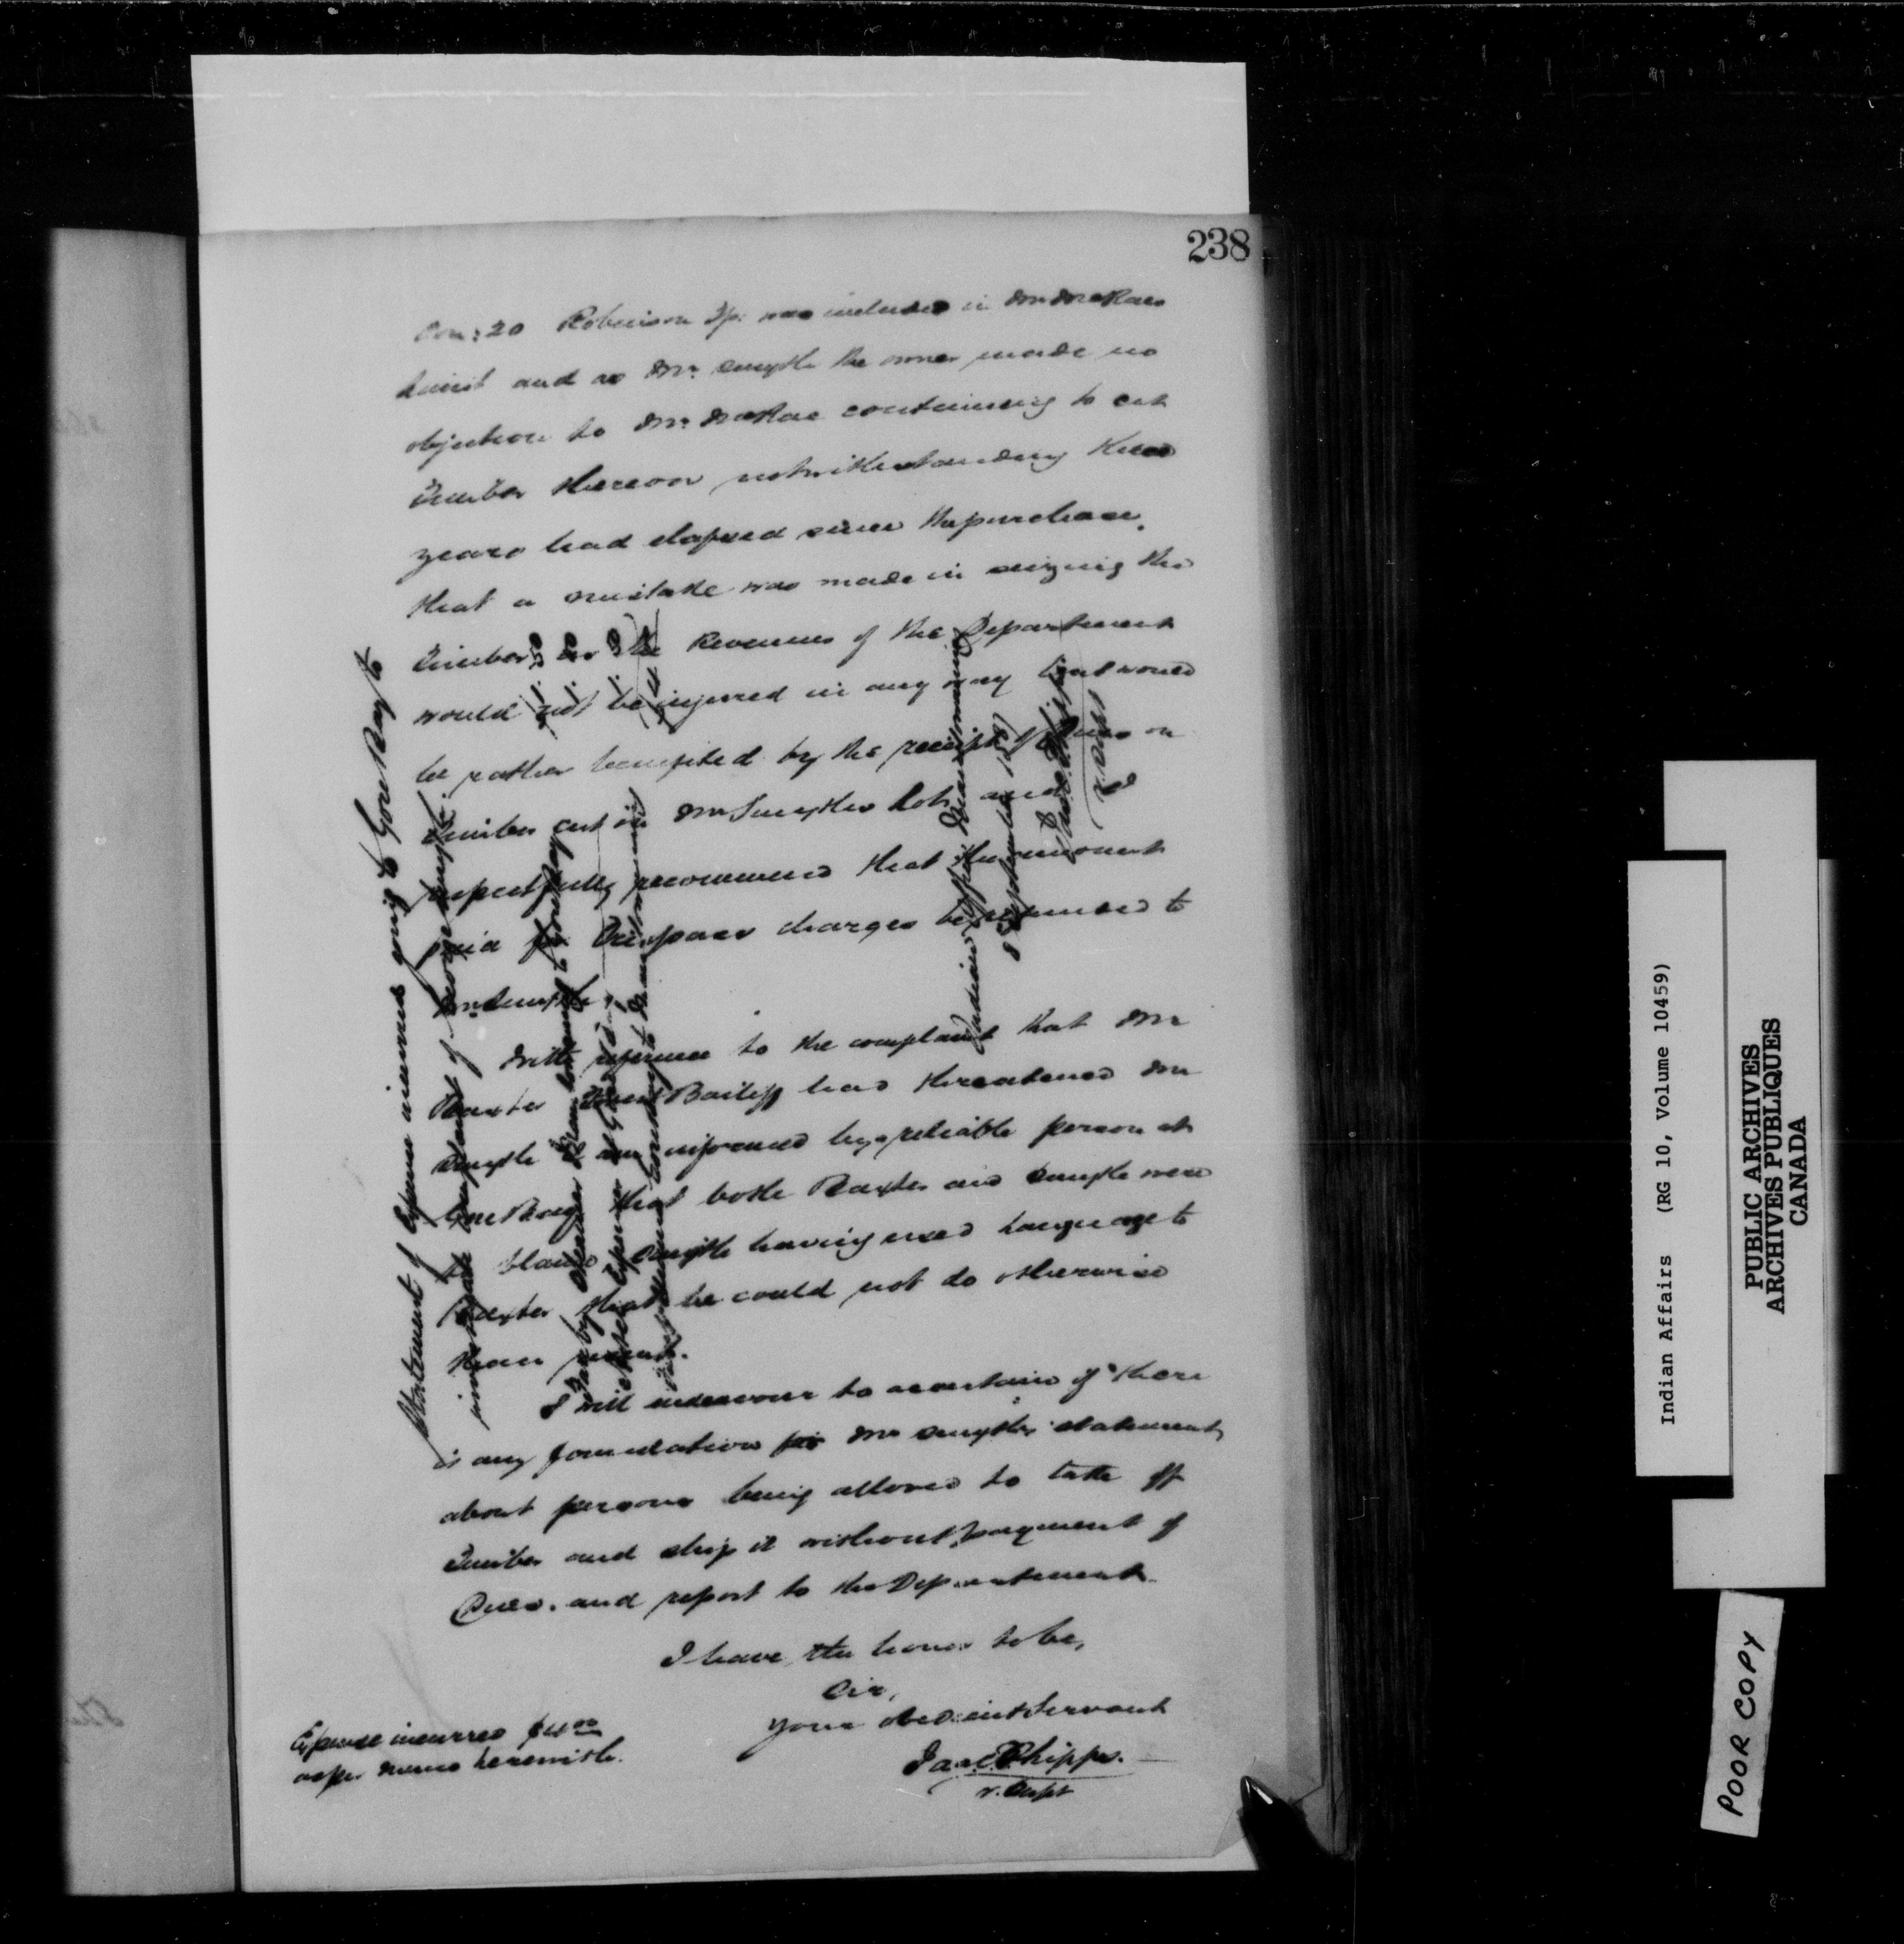 238
Con: 20 Robinson Tp: was included in Mr McRaes
limit and as Mr. Smythe the owner made no
objection to Mr. McRae continuing to cut
Timber thereon notwithstanding three
years had elapsed since the purchase,
that a mistake was made in seizing the
Timber as the Revenues of the Department
would not be injured in any way but would
be rather benefited by the receipt of Dues on
Timber cut on Mr Smythes Lot and I
respectfully recommend that the amount
paid for Trespass charges be refunded to
Mr. Smythe.
With reference to the complaint that Mr
Baxter Forest Bailiff had threatened Mr
Smythe I am informed by a reliable person at
Gore Bay that both Baxter and Smythe were
to blame Smythe having used language to
Baxter that he could not do otherwise
than resent.
I will endeavour to ascertain if there
is any foundation for Mr Smythes statement
about persons being allowed to take off
Timber and ship it without payment of
Dues. and report to the Department.
I have the honor to be,
Sir,
Your obedient Servant
Jas. C. Phipps.
V. Supt
Expense incurred $4.00
as per memo herewith.
Statement of Expense incurred going to Gore Bay to
investigate complaint of George Smythe.
Fare by Steamer Manitowaning to Gore Bay
Hotel Expenses at Gore Bay
Manitowaning
Indian Office Manitowaning
8 September 188
Jas. C. Phipps
V. Supt
Indian Affairs (RG 10, Volume 10459)
PUBLIC ARCHIVES
ARCHIVES PUBLIQUES
CANADA
POOR COPY